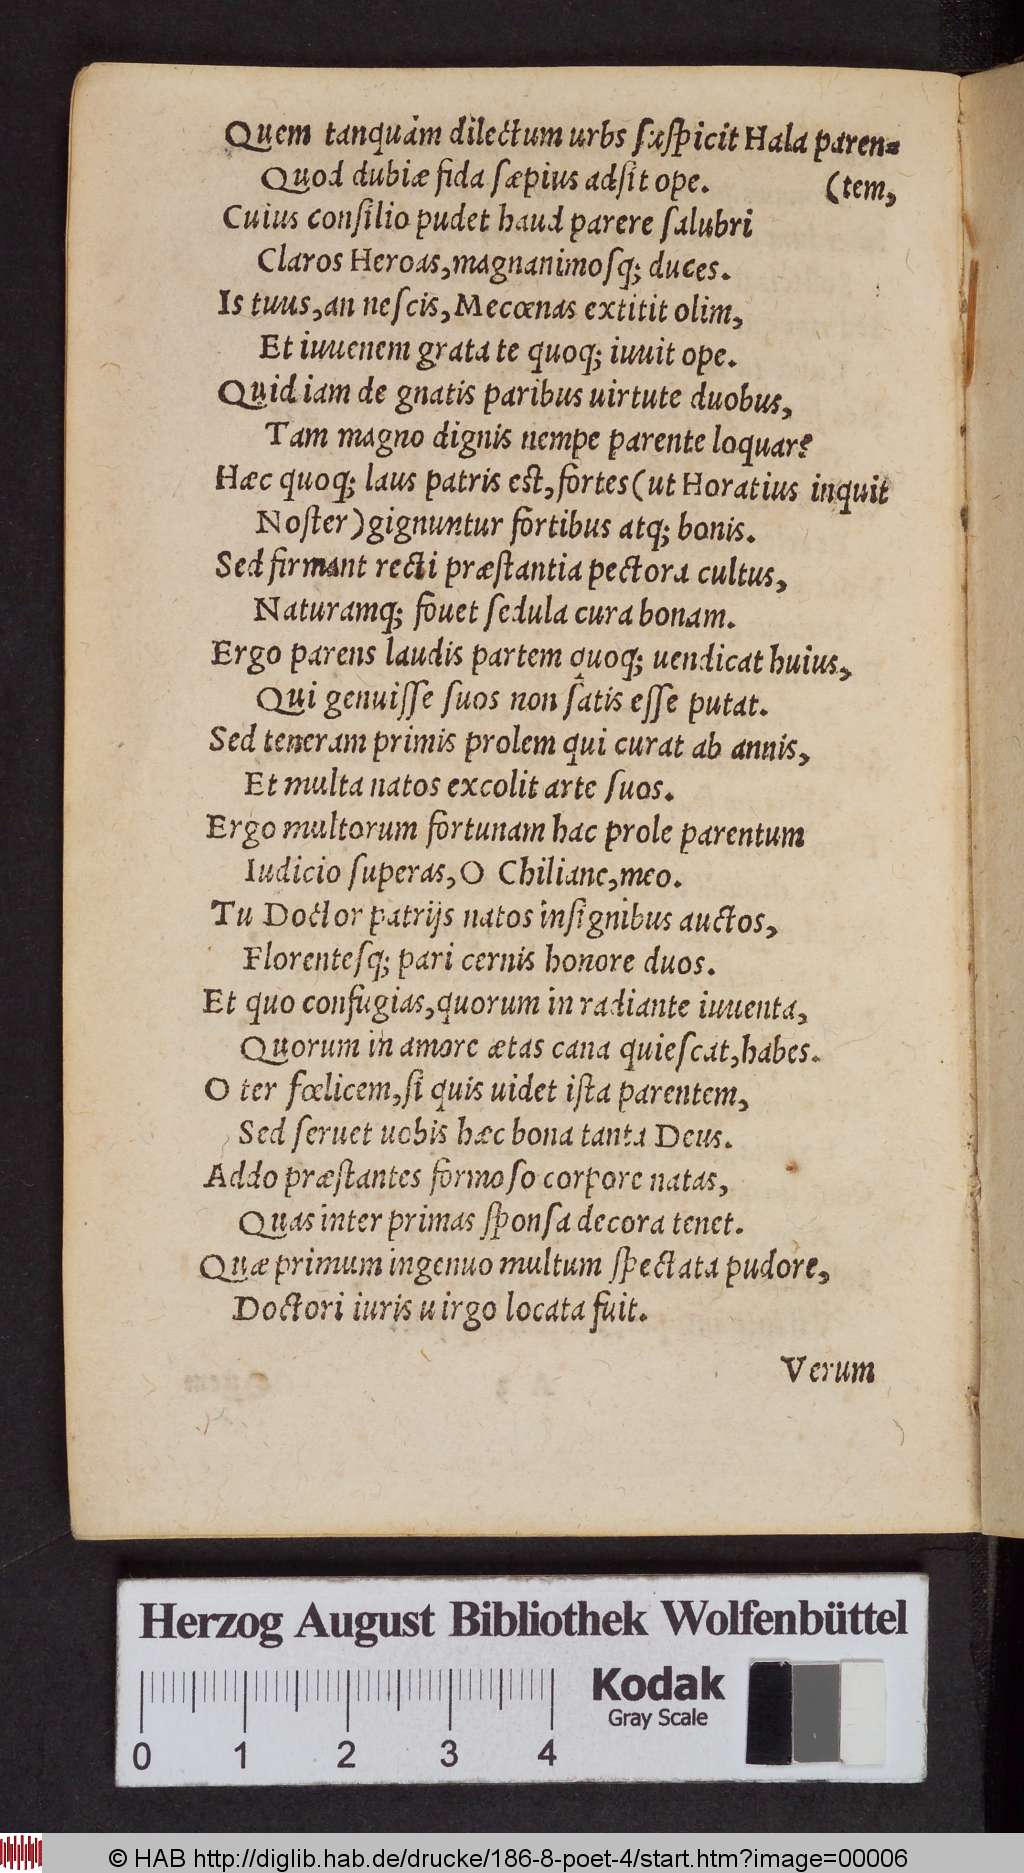 Quem tanquàm dilectum urbs suspicit Hala paren=
Quod dubiæ fida sæpius adsit ope. (tem,
Cuius consilio pudet haud parere salubri
Claros Heroas, magnanimosq; duces.
Is tuus, an nescis, Mecœnas extitit olim,
Et iuuenem grata te quoq; iuuit ope.
Quid iam de gnatis paribus uirtute duobus,
Tam magno dignis nempe parente loquar?
Hæc quoq; laus patris est, fortes (ut Horatius inquit
Noster) gignuntur fortibus atq; bonis.
Sed firmant recti præstantia pectora cultus,
Naturamq; fouet sedula cura bonam.
Ergo parens laudis partem quoq; uendicat huius,
Qui genuisse suos non satis esse putat.
Sed teneram primis prolem qui curat ab annis,
Et multa natos excolit arte suos.
Ergo multorum fortunam hac prole parentum
Iudicio superas, O Chiliane, meo.
Tu Doctor patrijs natos insignibus auctos,
Florentesq; pari cernis honore duos.
Et quo confugias, quorum in radiante iuuenta,
Quorum in amore ætas cana quiescat, habes.
O ter fœlicem, si quis uidet ista parentem,
Sed seruet uobis hæc bona tanta Deus.
Addo præstantes formoso corpore natas,
Quas inter primas sponsa decora tenet.
Quæ primum ingenuo multum spectata pudore,
Doctori iuris uirgo locata fuit.
Verum
Herzog August Bibliothek Wolfenbüttel
Kodak
Gray Scale
0 1 2 3 4
© HAB http://diglib.hab.de/drucke/186-8-poet-4/start.htm?image=00006